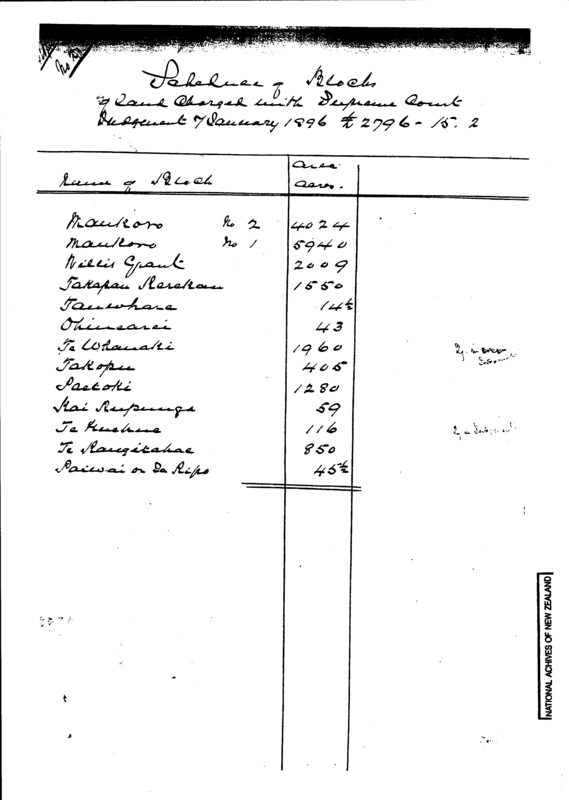 Schedule of Blocks
of Land Charged with Supreme Court
Judgement 7 January 1896 £2796-15.2
Name of Block Area acres.
Maukoro No 2 4024
Maukoro No 1 5940
Willis Grant 2009
Takapau Karakau 1550
Tauwhare 14½
43
Te Whanaki 1960
Takopu 405
Paetoki 1280
Kai Rupunga 59
Te Huehue 116
Te Rangitahae 850
Paiwai or Te Ripo 45½
NATIONAL ACHIVES OF NEW ZEALAND